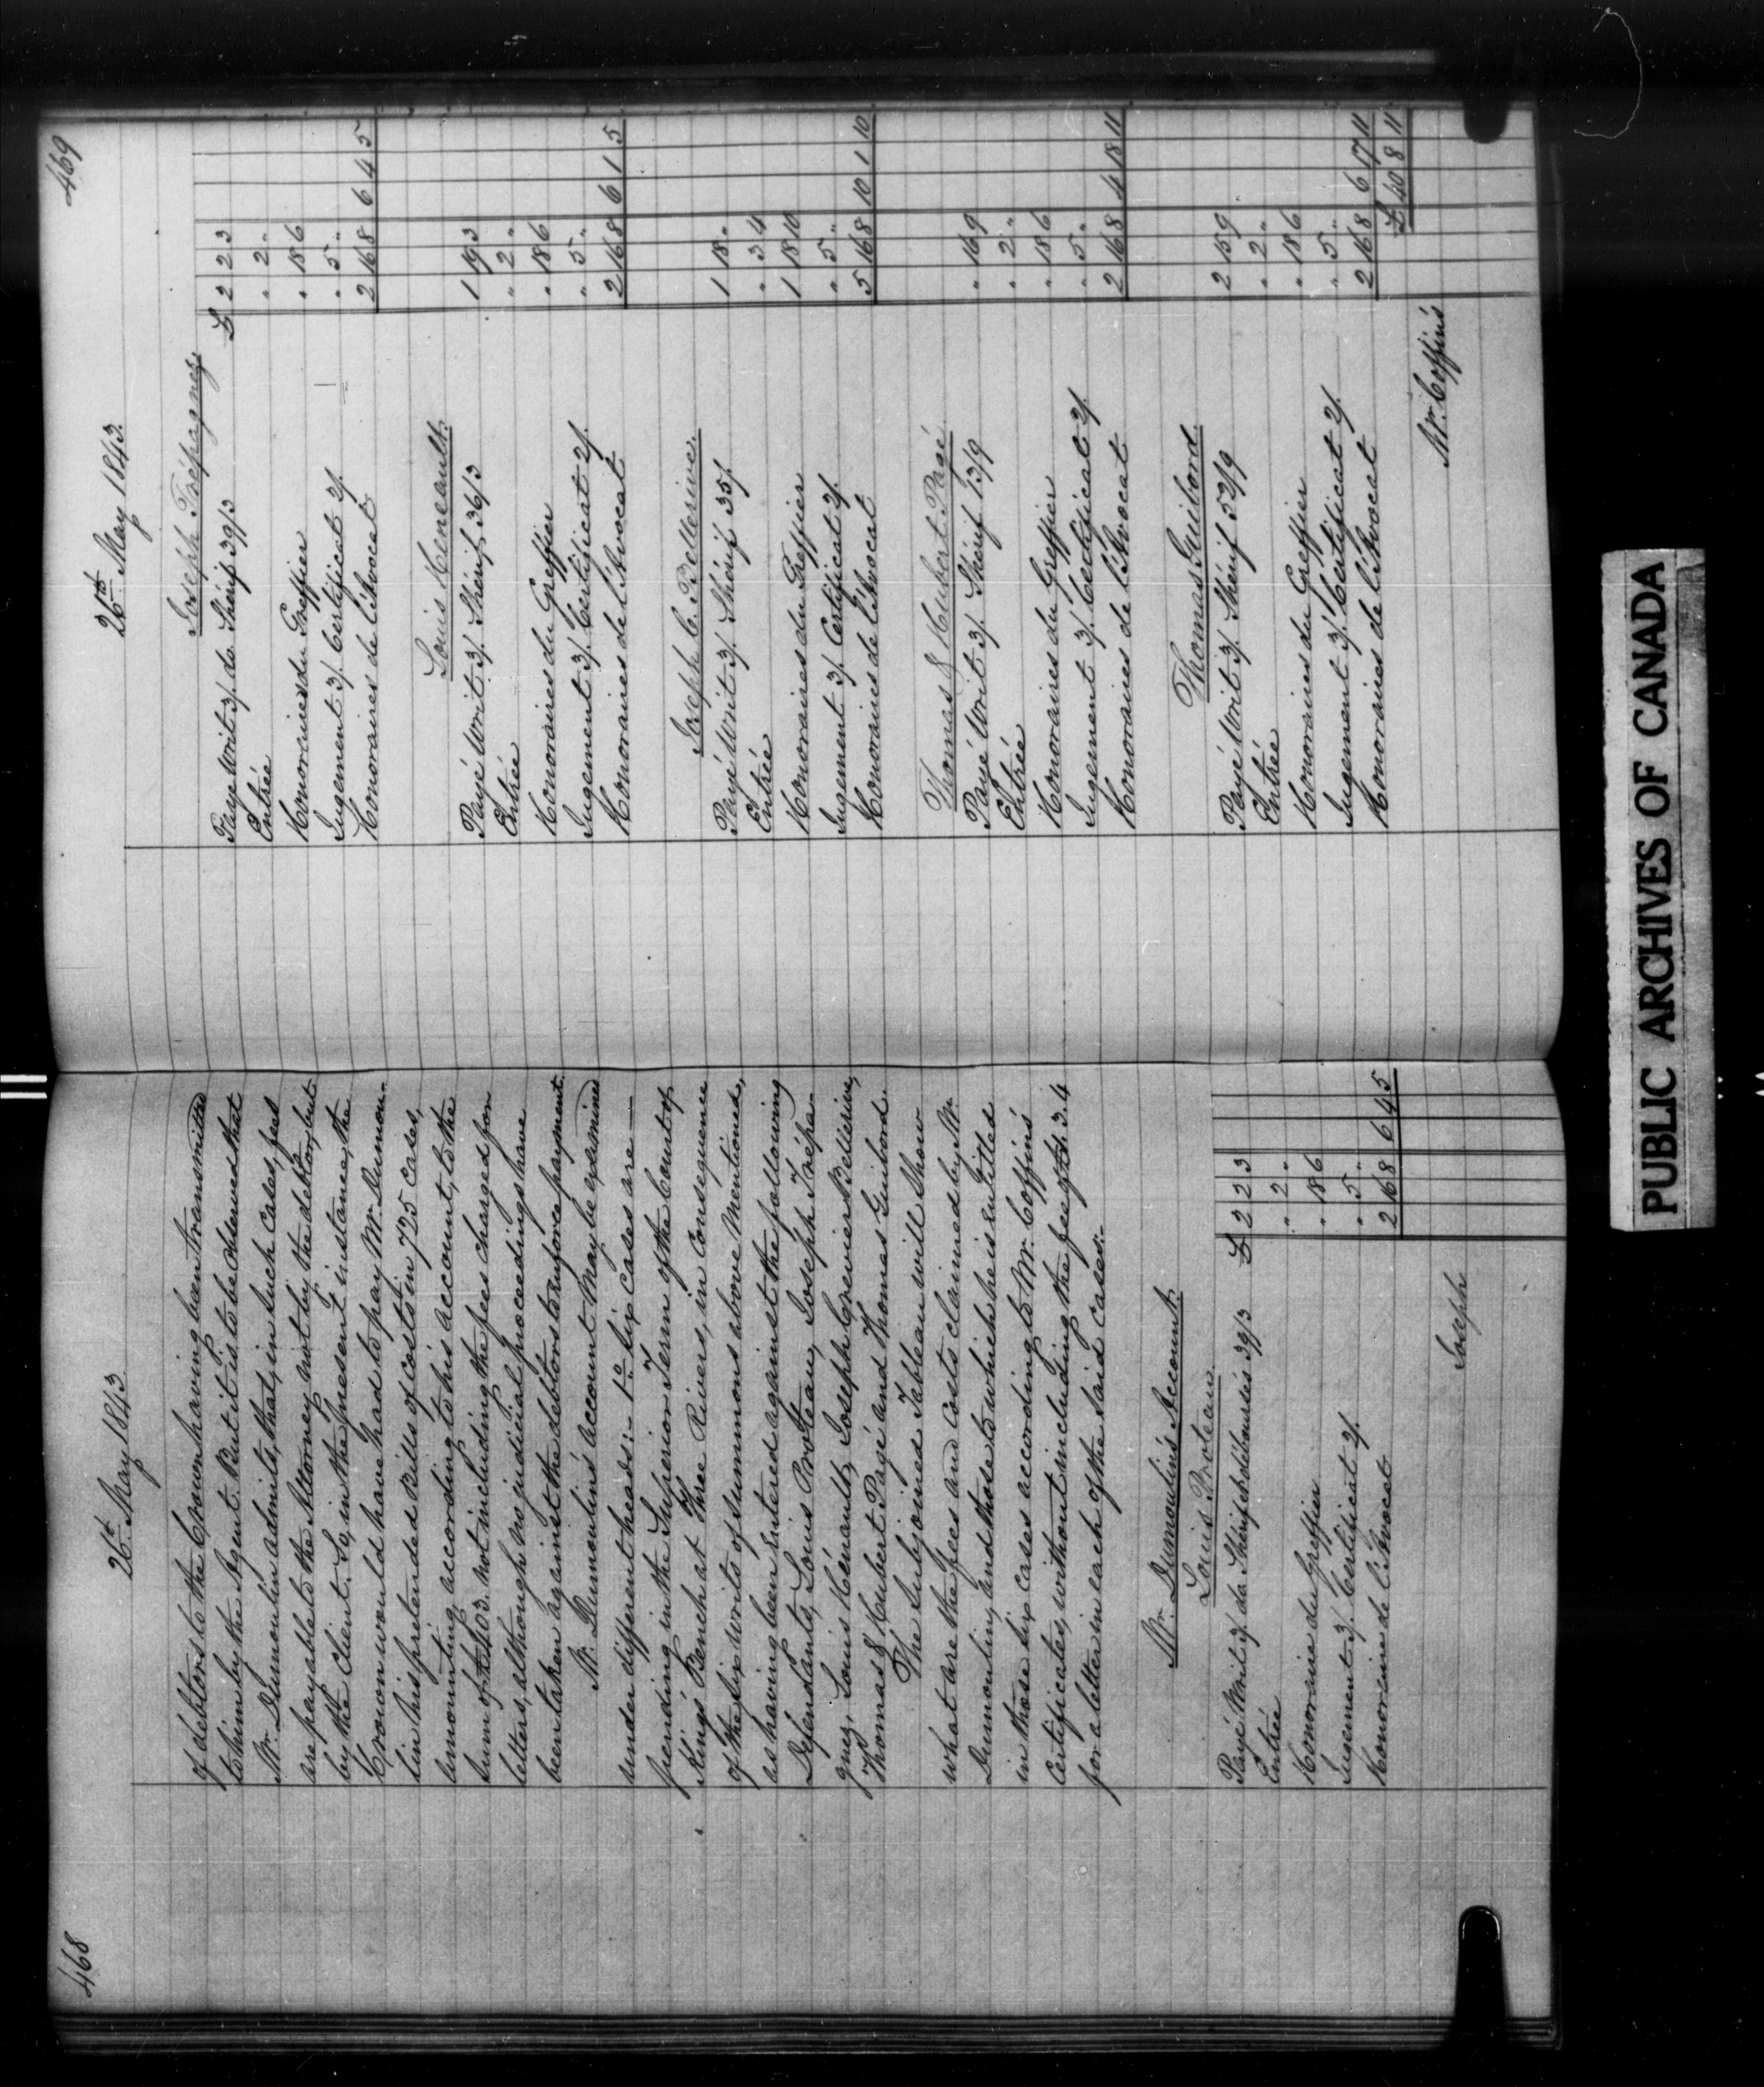 468
26th May 1843
of debtors to the Crown having been transmitted
to him by the Agent. But it is to be observed that
Mr. Dumoulin admits, that, in such cases, fees
are payable to the Attorney not by the debtor, but
by the Client. So, in the present instance, the
Crown would have had to pay Mr. Dumou-
lin his pretended Bills of costs in 725 cases,
amounting, according to his account, to the
Sum of not including the fees charged for
letters, although no judicial proceedings have
been taken against the debtors to enforce payment.
Mr. Dumoulin's account may be examined
under different heads:- 1o Six Cases are —
pending in the Superior Term of the Court of
King's Bench at Three Rivers, in Consequence
of the six writs of summons above Mentioned,
as having been entered against the following
Defendants, Louis Proteau, Joseph Trépa-
gney, Louis Hénault, Joseph Crevier Bellerive,
Thomas & Hubert Pagé and Thomas Guibord.
The Subjoined Tableau will Show
what are the fees and costs claimed by Mr.
Dumoulin, and those to which he is entitled
in those six cases according to Mr. Coffin's
Certificates, without including the fee of 3.4
for a letter in each of the said cases.
Mr. Dumoulin's Account.
Louis Proteau.
Payé Writ 3/. do. Shérif déboursés 39/3 £ 2 2 3
Entrée " 2 "
Honoraire du Greffier " 18 6
Jugement 3/. Certificat 2/. " 5 "
Honoraire de l'Avocat 2 16 8 6 4 5
Joseph
469
26th May 1843.
Joseph Trépagney.
Payé Writ 3/. do. Shérif 39/3 £ 2 2 3
Entrée " 2 "
Honoraires du Greffier " 18 6
Jugement 3/. Certificat 2/. " 5 "
Honoraires de l'Avocat 2 16 8 6 4 5
Louis Heneault.
Payé Writ 3/. Shérif 36/3 1 19 3
Entrée " 2 "
Honoraires du Greffier " 18 6
Jugement 3/. Certificat 2/. " 5 "
Honoraires de l'Avocat 2 16 8 6 1 5
Joseph C. Bellerive.
Payé Writ 3/. Shérif 35/. 1 18 "
Entrée " 3 4
Honoraires du Greffier 1 18 10
Jugement 3/. Certificat 2/. " 5 "
Honoraires de l'Avocat 5 16 8 10 1 10
Thomas & Hubert Pagé
Payé Writ 3/. Shérif 13/9 " 16 9
Entrée " 2 "
Honoraires du Greffier " 18 6
Jugement 3/. Certificat 2/. " 5 "
Honoraires de l'Avocat 2 16 8 4 18 11
Thomas Guibord.
Payé Writ 3/. Shérif 52/9 2 15 9
Entrée " 2 "
Honoraires du Greffier " 18 6
Jugement 3/. Certificat 2/. " 5 "
Honoraires de l'Avocat 2 16 8 6 17 11
£ 40 8 11
Mr. Coffin's
PUBLIC ARCHIVES OF CANADA